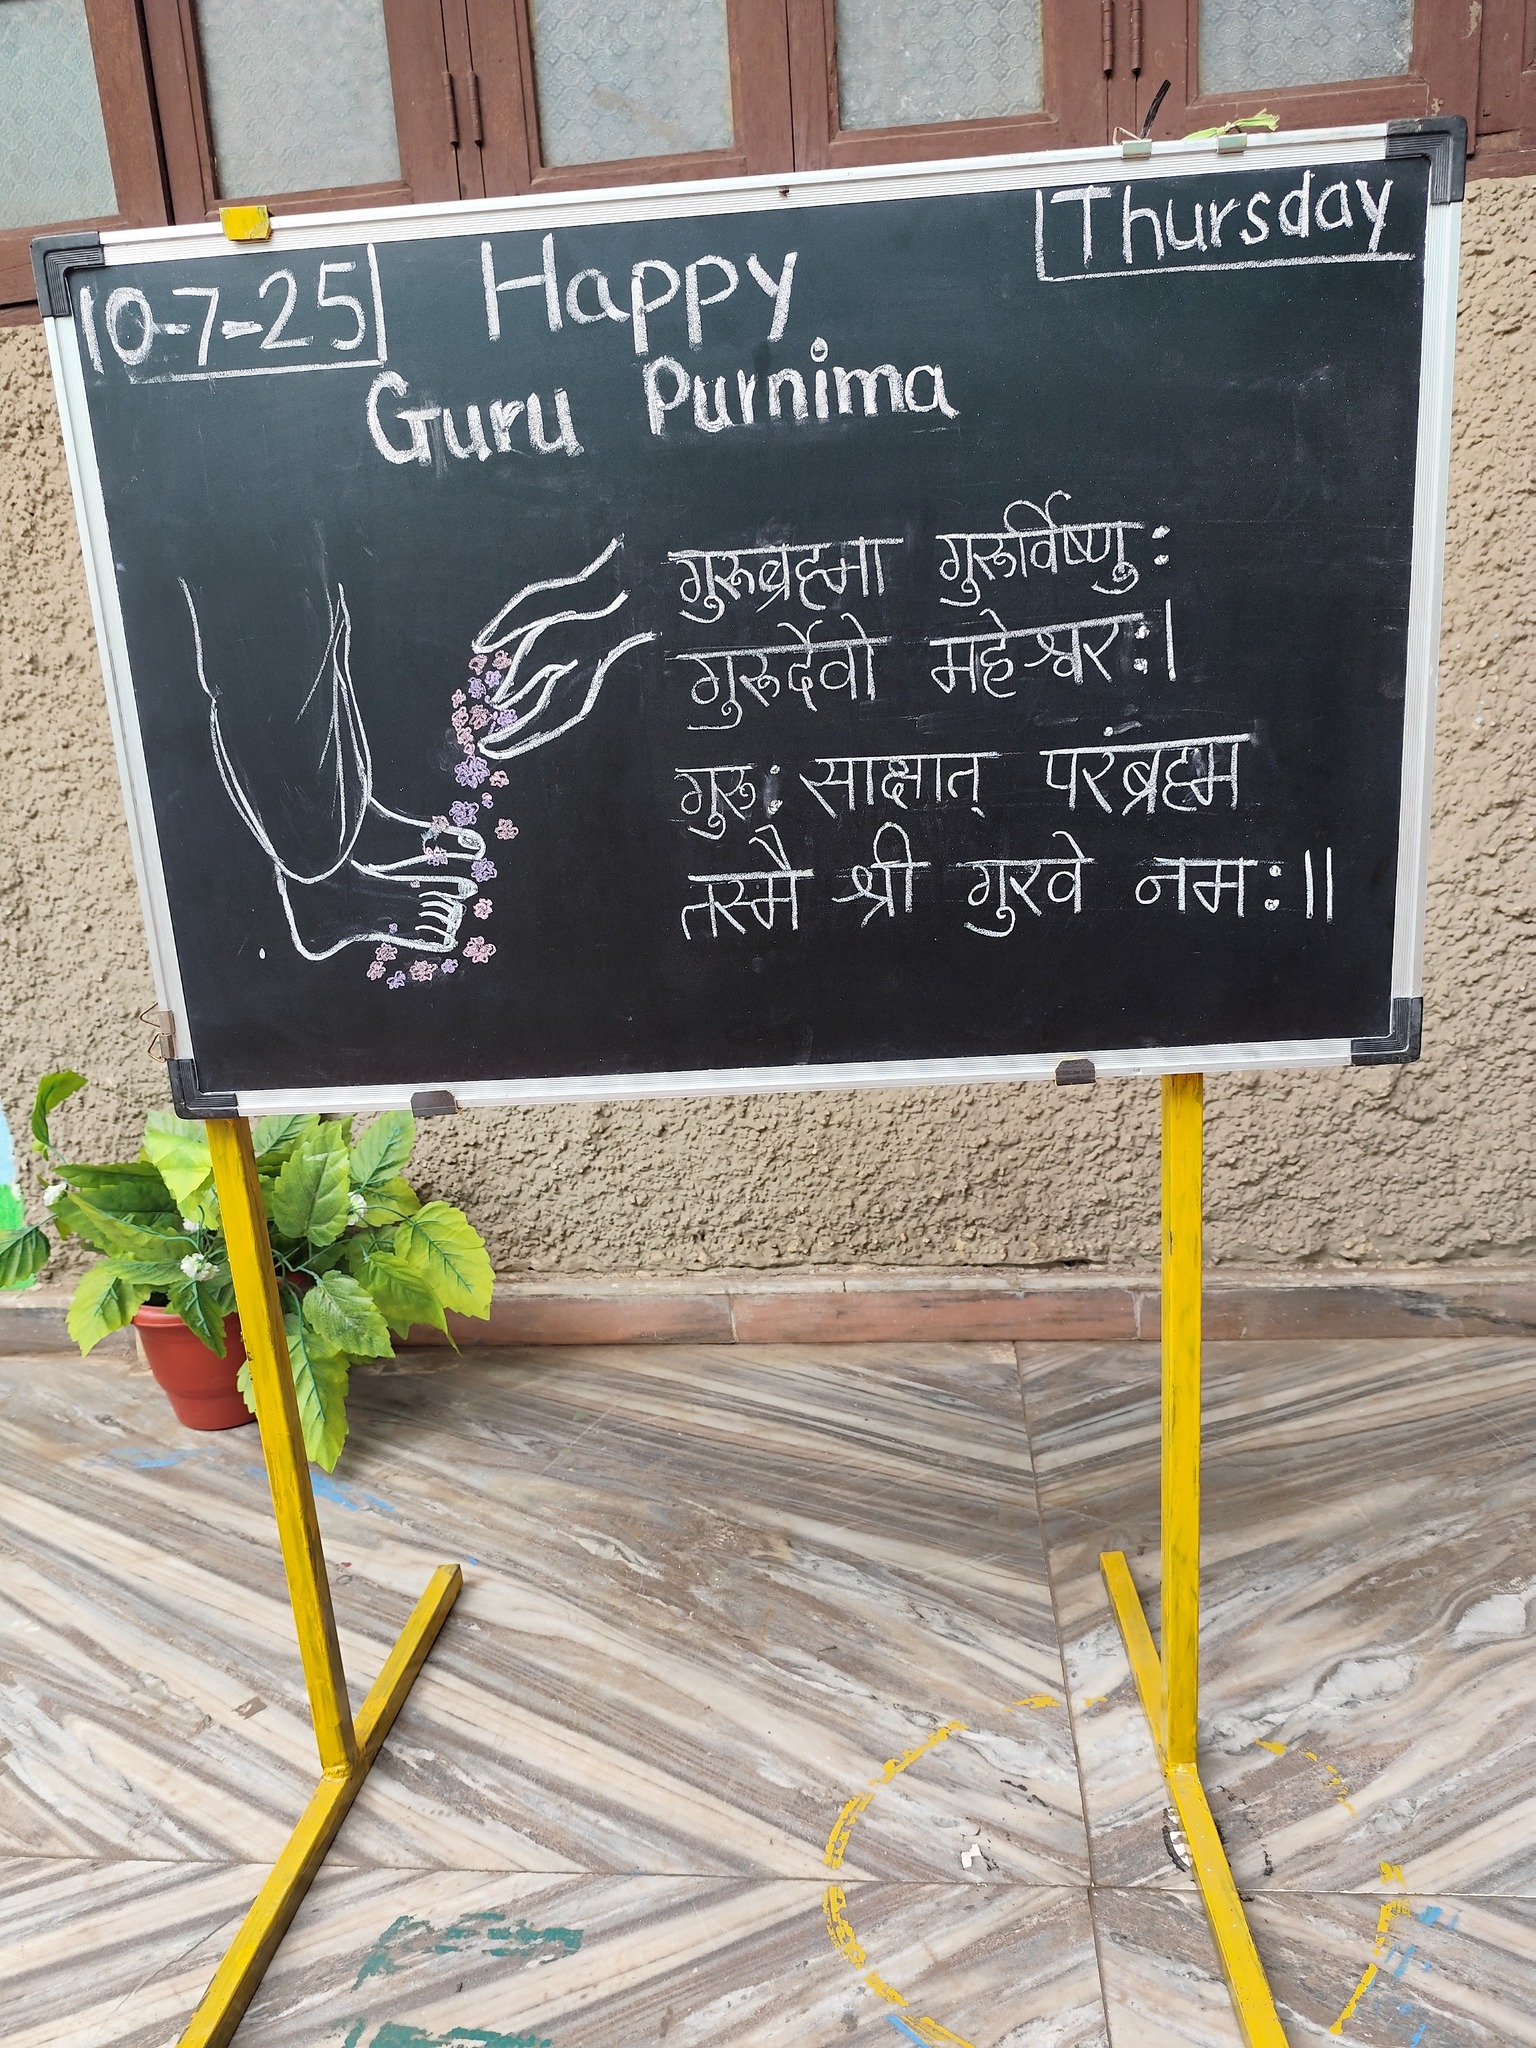 10-7-25
Thursday
Happy
Guru Purnima
गुरूब्रह्मा गुरूर्विष्णु:
गुरूर्देवो महेश्वर:।
गुरू: साक्षात् परंब्रह्म
तस्मै श्री गुरवे नम:॥